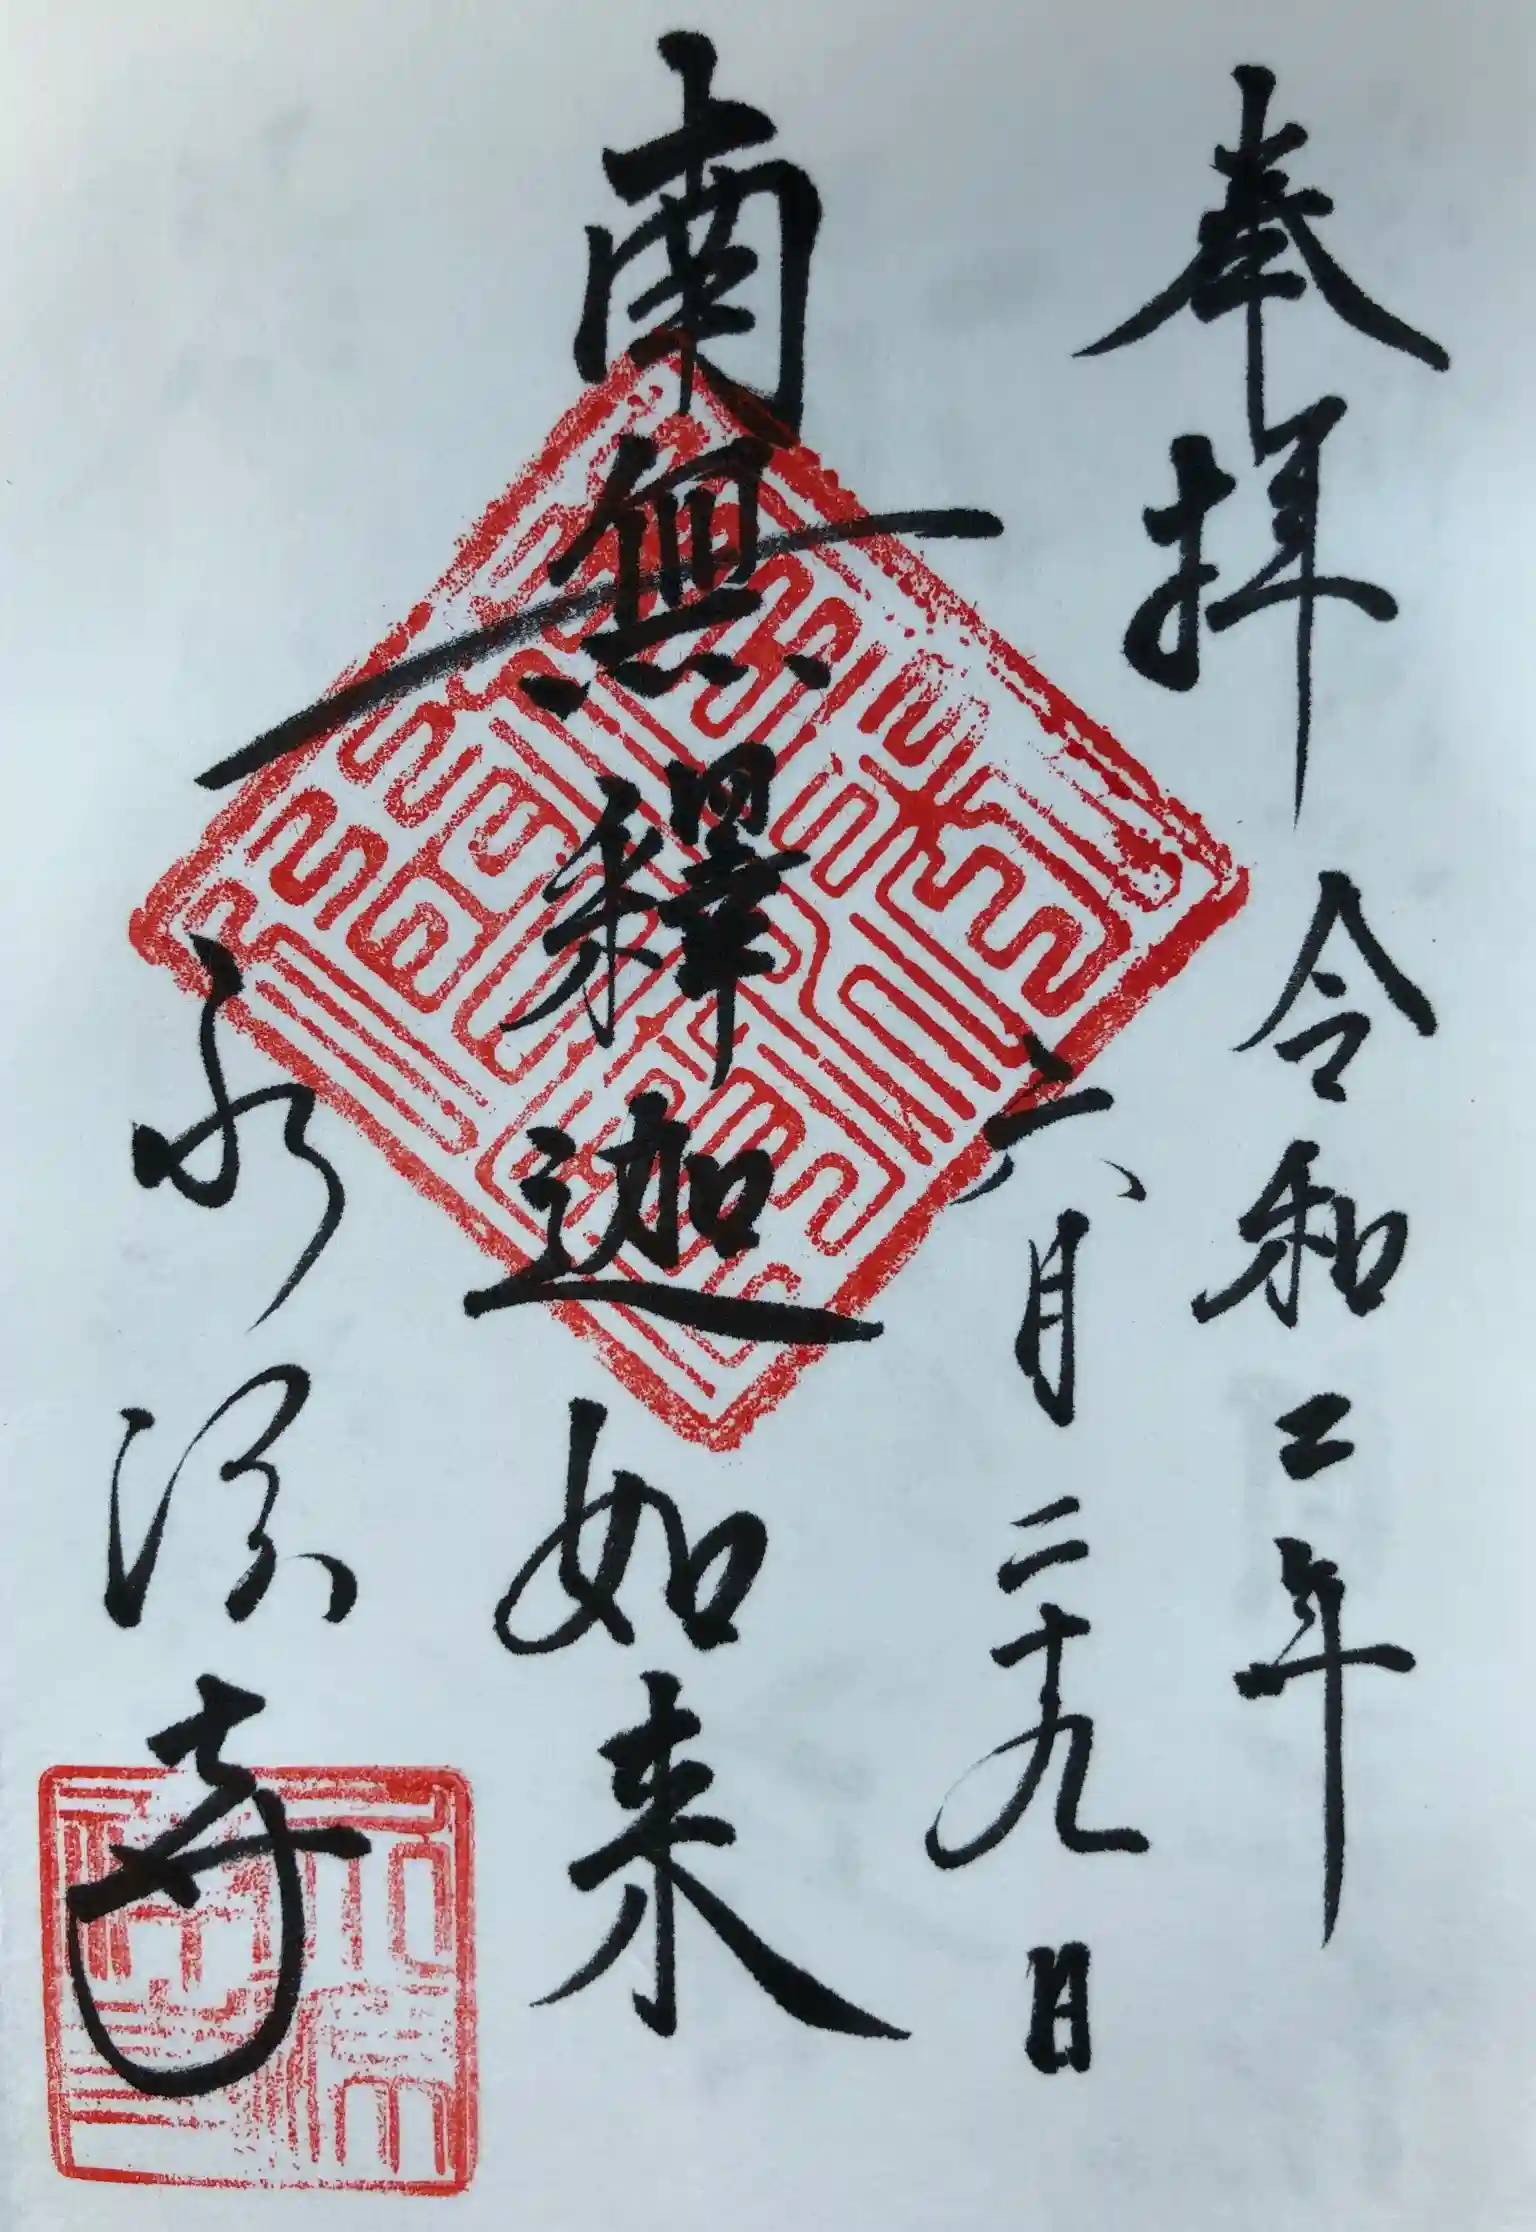 奉拝 令和二年
六月二十九日
南無釋迦如来
永源寺